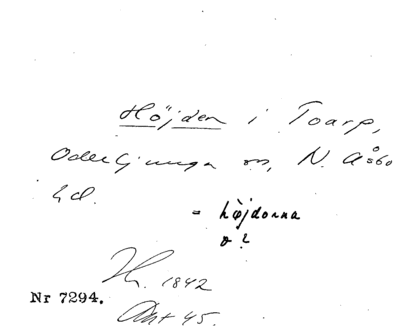 Höjden i Toarp,
Oderljunga sn, N. Åsbo
hd.
= höjdorna
o ?
Hr. 1842
Nr 7294.
Ant 45.